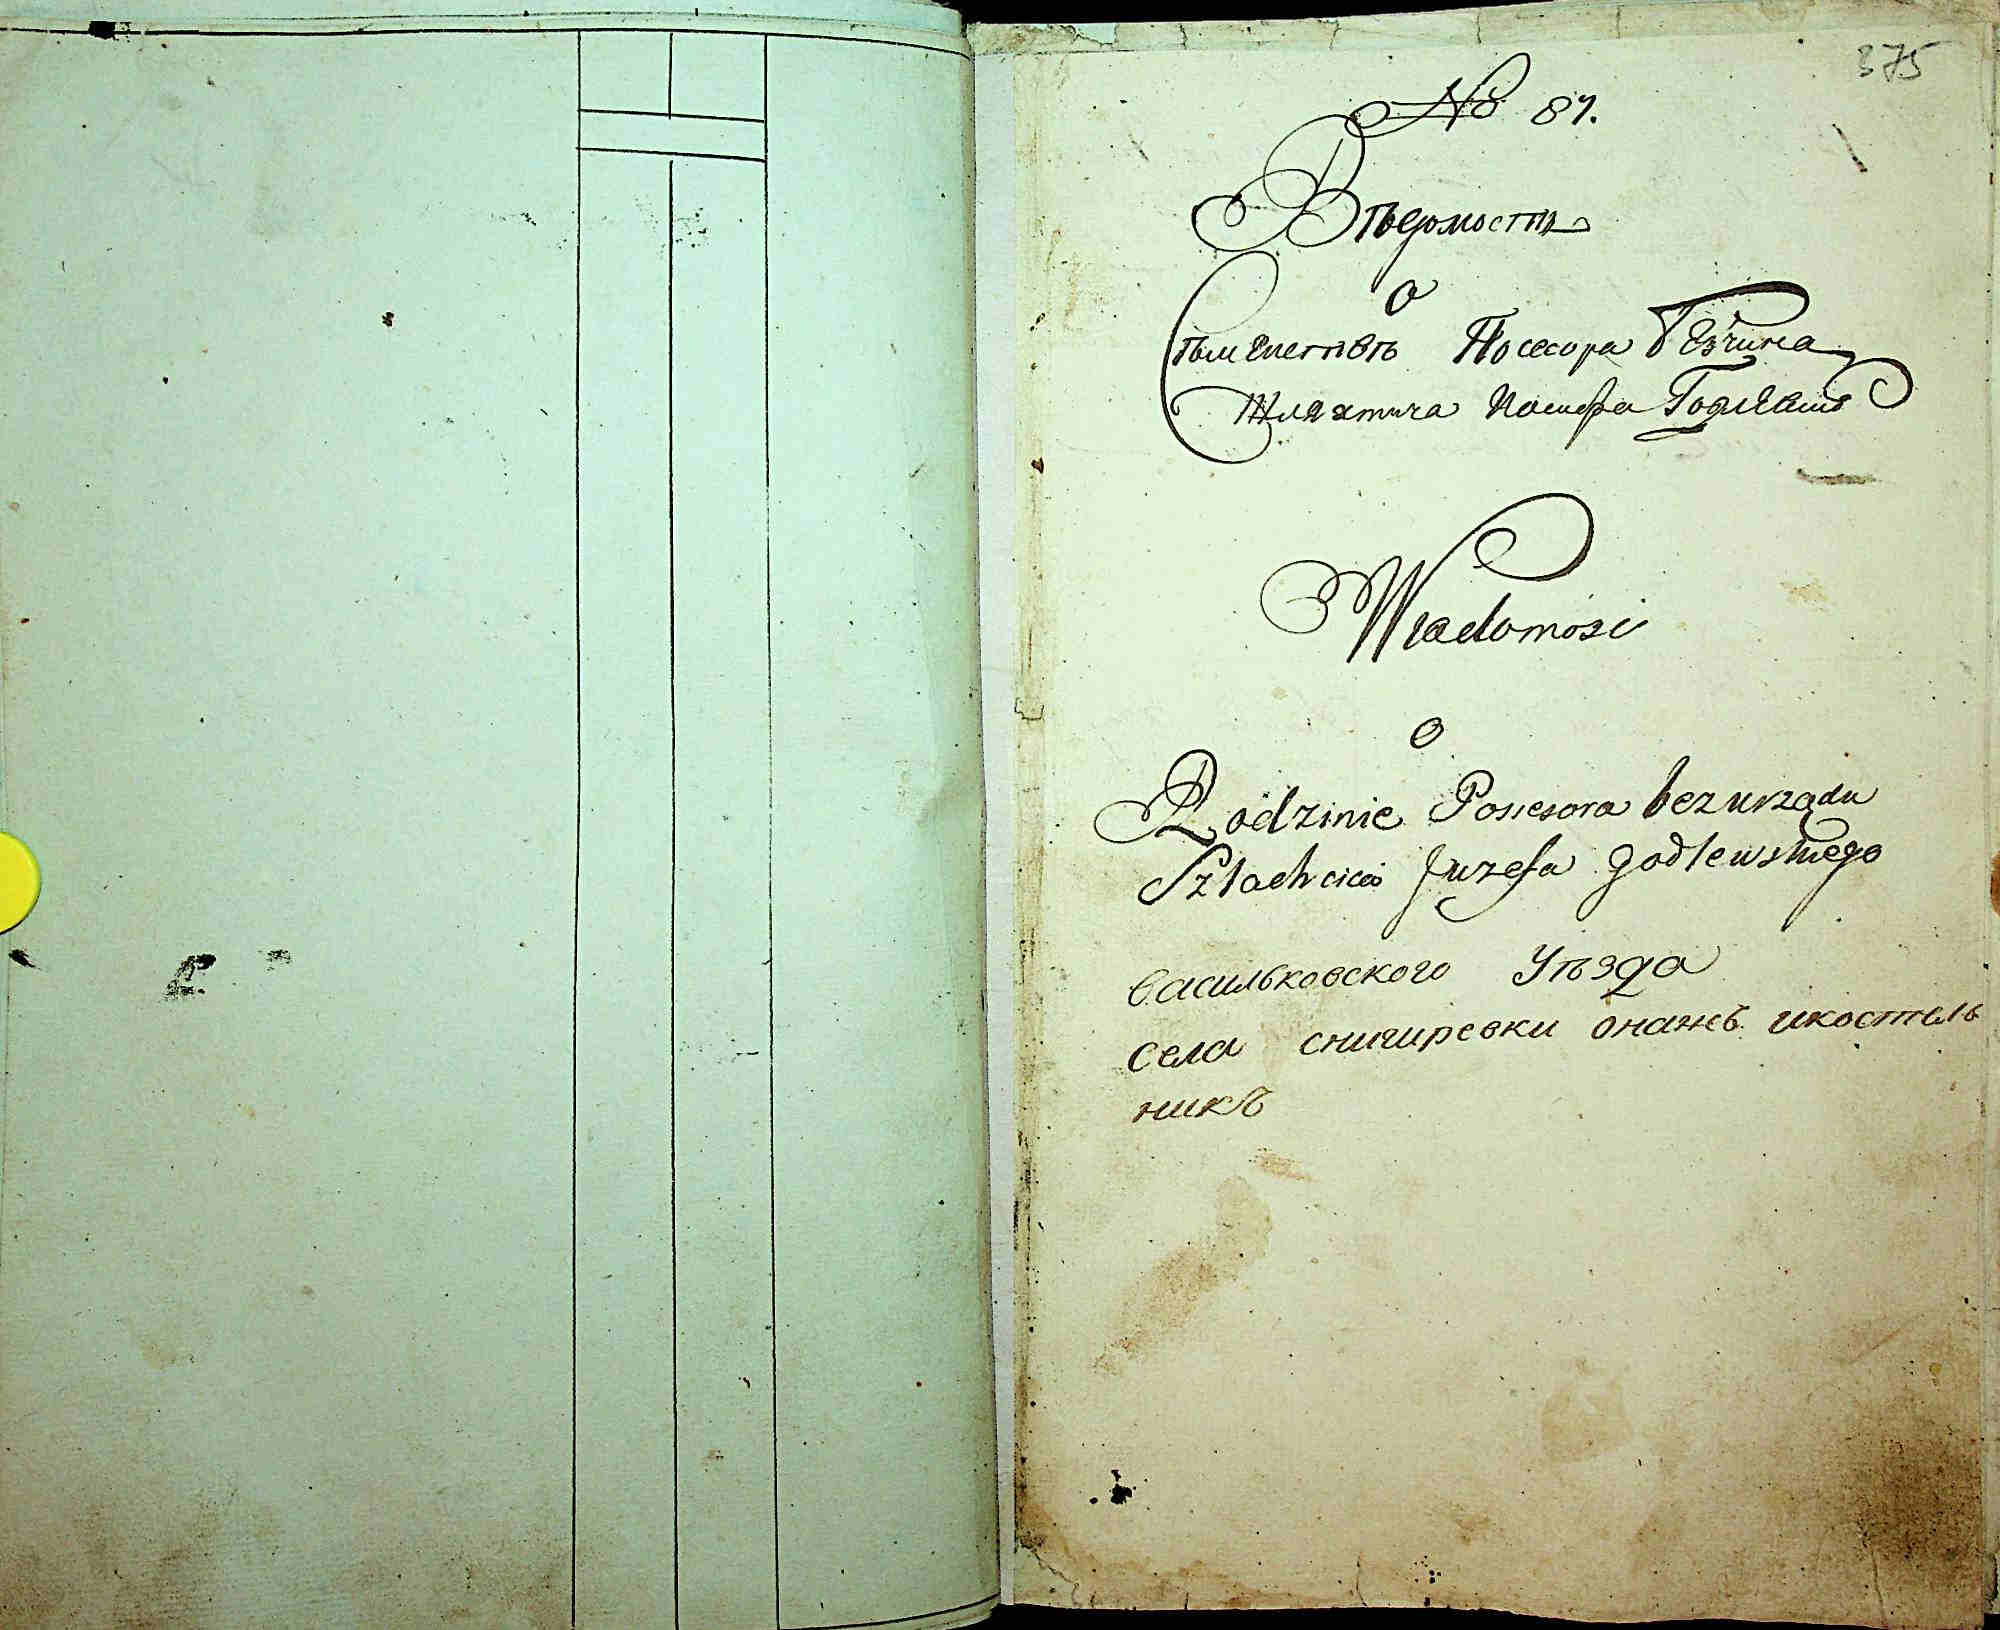 375
No 87.
Вѣдомость
О
Сѣмействѣ Посесора безчина
Шляхтича Иосифа Годлевшо
Wiadomość
O
Rodzinie Possesora bez urzędu
Szlachcica Juzefa Godlewskiego
васильковского Уѣзда
села снигиревки онажъ икостель
никъ